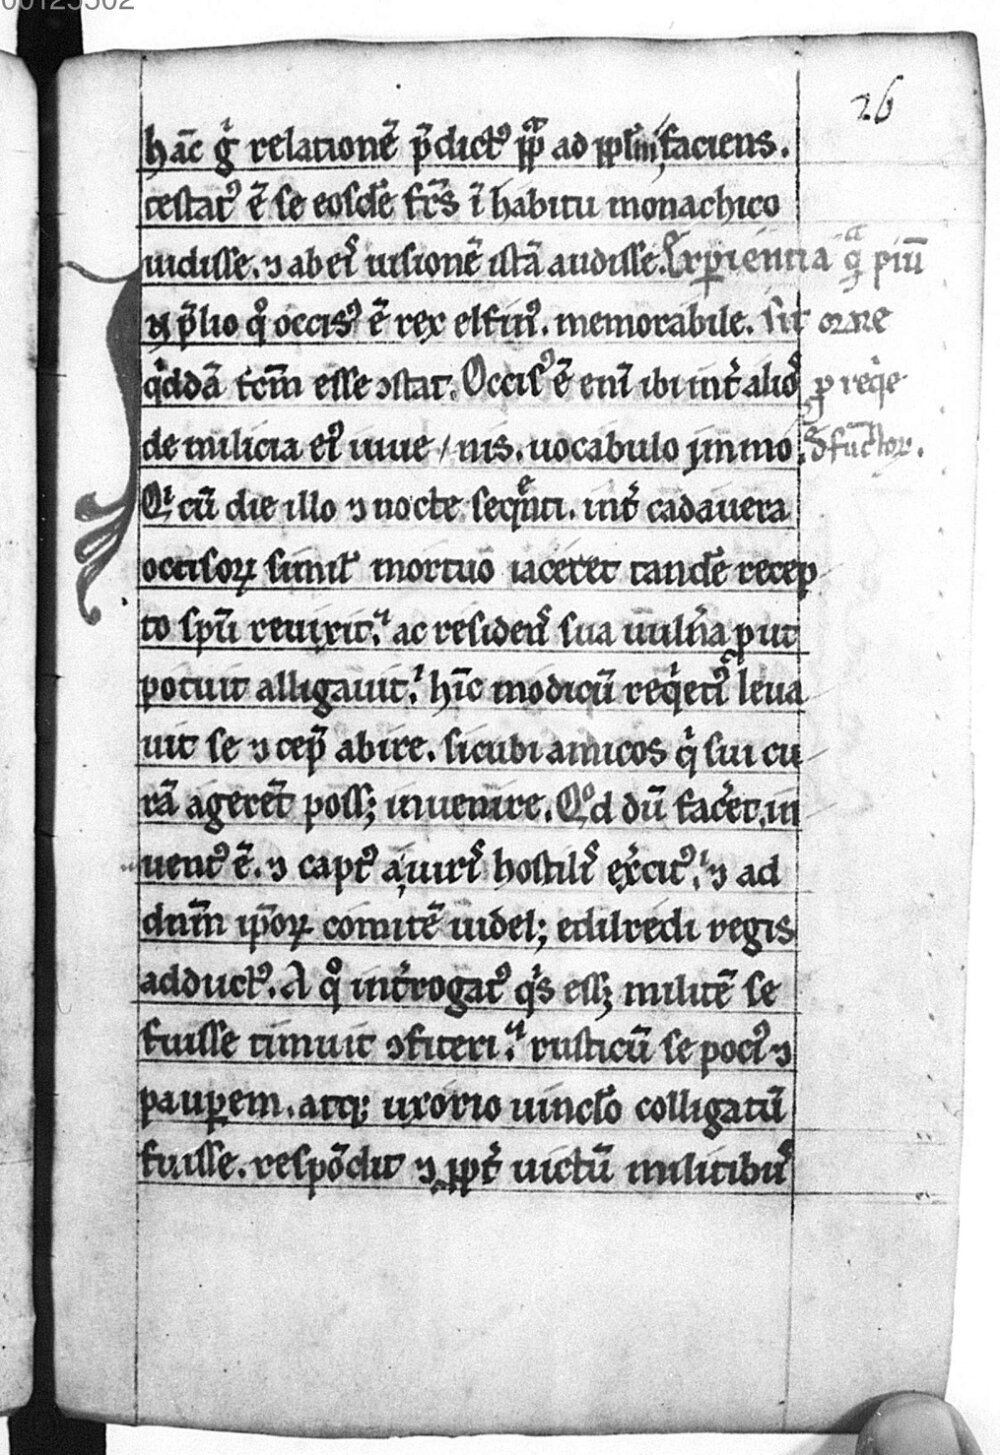 26
hāc gͥ relationē p̄dictꝰ pp̄ ad pplm̄ faciens.
testatꝰ ē se eosdē fr̄s ī habitu monachico
uidisse. ⁊ ab eiſ uisionē istā audisse. Experientia qͣ piū
In p̄lio qͦ occisꝰ ē rex elfinꝰ. memorabile. sit orare
qͥddā fcm̄ esse ꝯstat. Occisꝰ ē enī ibi int̄ alioſ ꝓ reqͥe
de milicia eiꝰ iuue / nis. uocabulo jmmo. defunctor.
Qͥ cū die illo ⁊ nocte seqͤnti. int̄ cadauera
occisoꝝ simil̄ mortuo iaceret tandē recep
to spū reuixit. ac residenſ sua uulnͣa ꝓut
potuit alligauit. hīc modicū reqͥetꝰ leua
uit se ⁊ cep̄ abire. sicubi amicos qͥ sui cu
rā agerēt poss; inuenire. Qͦd dū facet̄. in
uentꝰ ē. ⁊ captꝰ a uiriſ hostiliſ exͨcitꝰ. ⁊ ad
dnm̄ ip̄oꝝ comitē uidel; edilredi regis
adductꝰ. A qͦ int̄rogatꝰ qͥs ess; militē se
fuisse timuit ꝯfiteri. rusticū se pociꝰ ⁊
pauꝑem. atq; uxorio uinclo colligatū
fuisse. respōdit ⁊ ꝓpt̄ uictū militibuſ